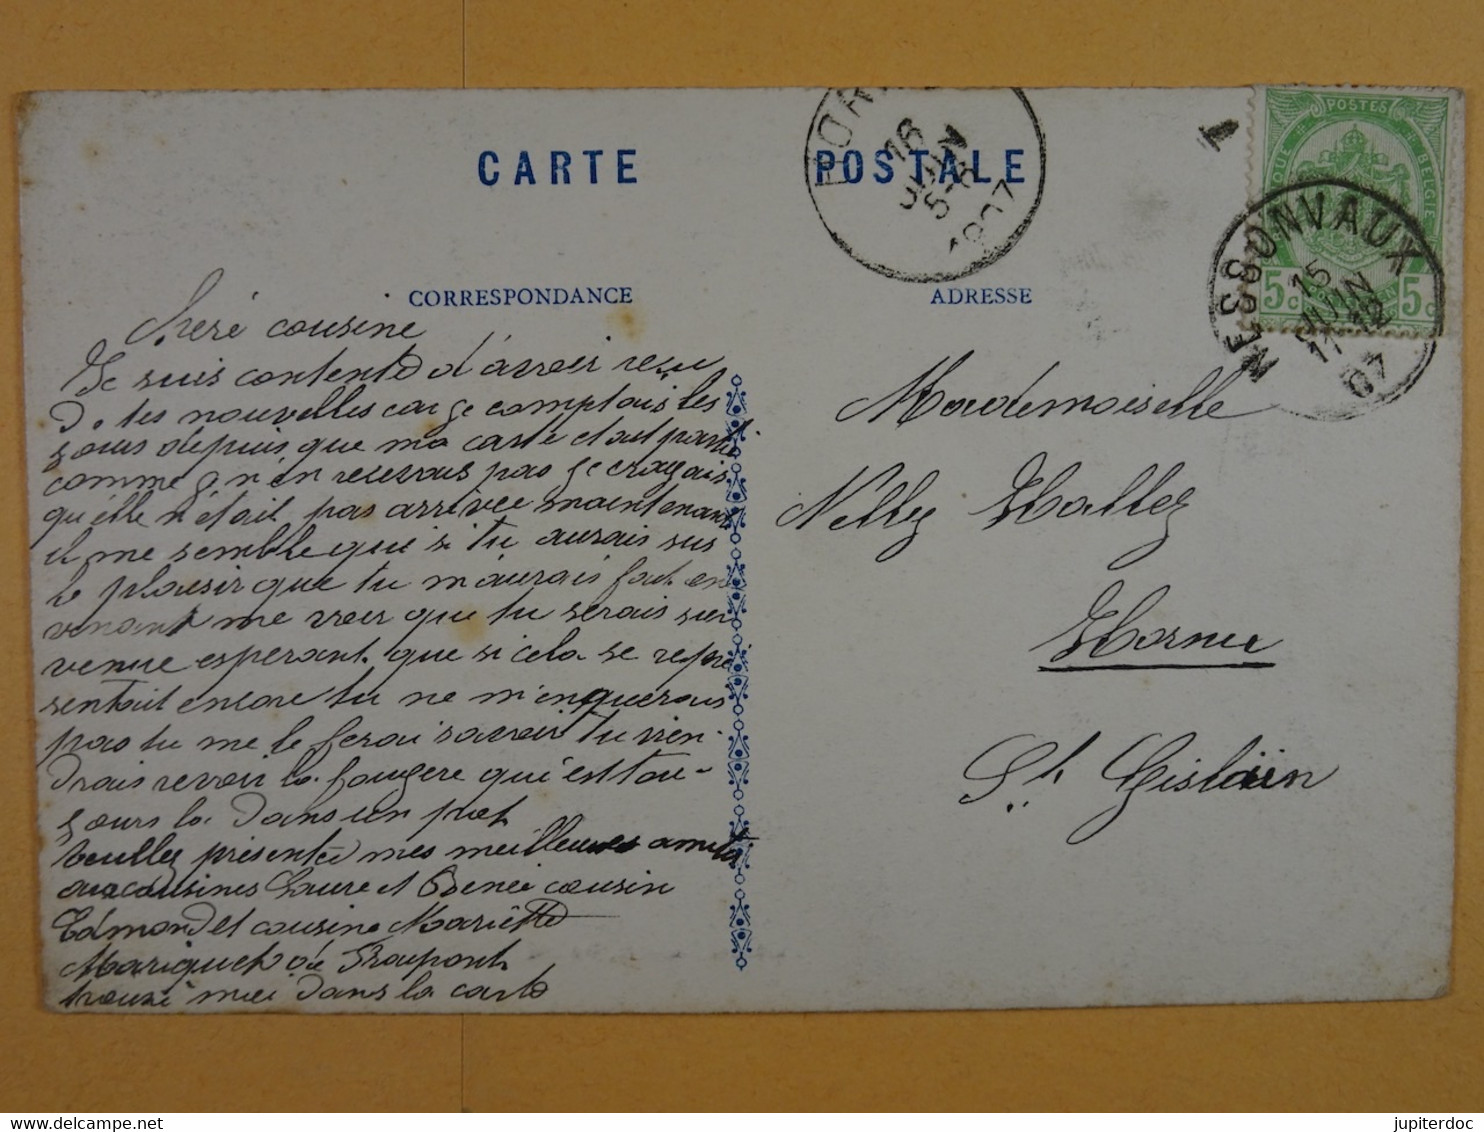 CARTE POSTALE
CORRESPONDANCE
ADRESSE
POSTES
BELGIE
5c 5c
NESSONVAUX
15
JUIN
11-12
07
16
JUIN
5-6
1907
1
Chere cousine
Je suis contente d'avoir reçu
de tes nouvelles car je comptais les
jours depuis que ma carte etait partie
comme je n'en recevais pas je croyais
qu'elle n'était pas arrivée maintenant
il me semble que si tu aurais sus
le plaisir que tu m'aurais fait en
venant me voir que tu serais sur
venue esperant que si cela se repré
sentait encore tu ne m'en
pas tu me le ferai savoir tu vien-
drais revoir la fougere qui est tou-
jours la dans un pot
Veullez présente mes meilleures amitié
aux cousines Laure et Renée cousin
Edmond et cousine Mariette
trouve moi dans la carte
Mademoiselle
Nelly Hallez
Hornu
St Gislain
jupiterdoc